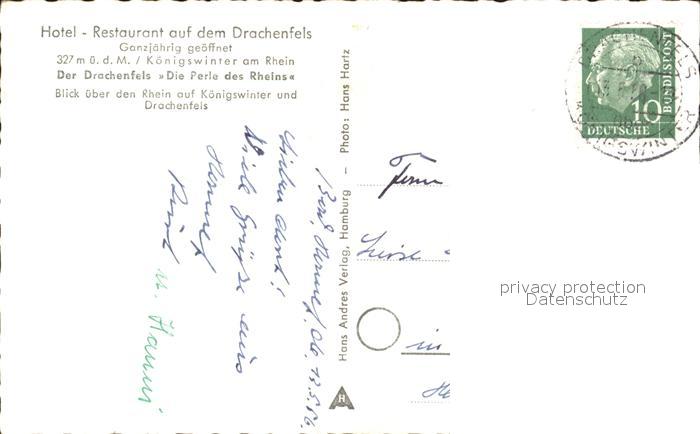 Hotel - Restaurant auf dem Drachenfels
Ganzjährig geöffnet
327 m ü. d. M. / Königswinter am Rhein
Der Drachenfels »Die Perle des Rheins«
Blick über den Rhein auf Königswinter und
Drachenfels
Hans Andres Verlag, Hamburg – Photo: Hans Hartz
HA
Bad Honnef, 13.5.56.
Viele Grüsse aus
Honnef
u. Hanni
in
10
DEUTSCHE
BUNDESPOST
privacy protection
Datenschutz